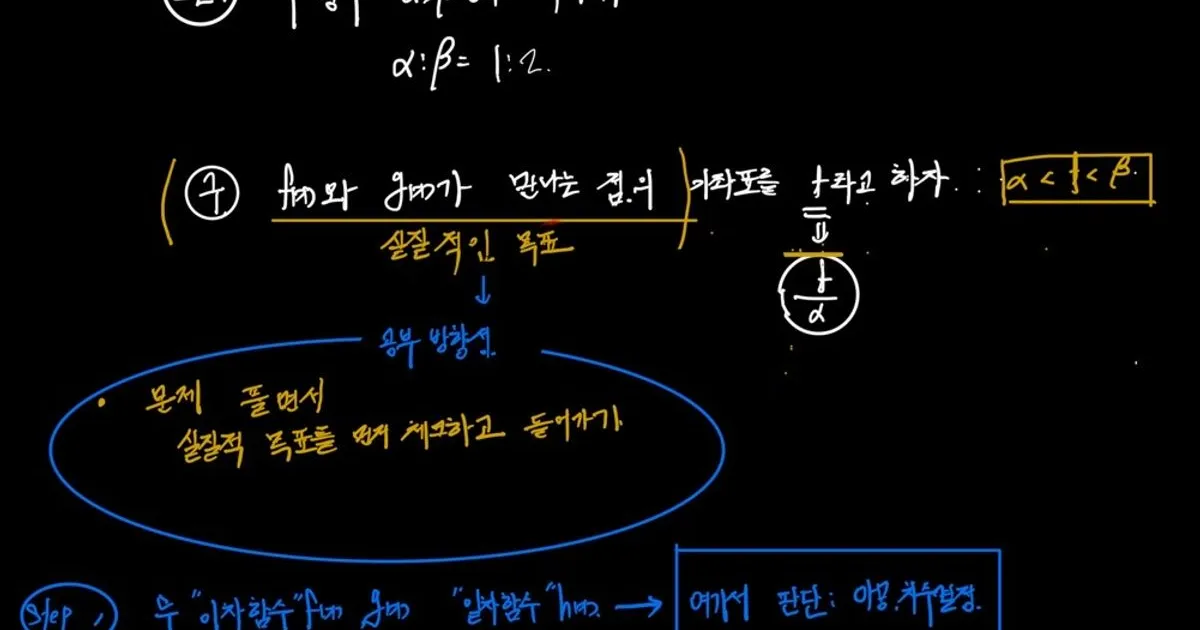 α:β= 1:2.
구 f(x)와 g(x)가 만나는 점의 x좌표를 t라고 하자. : α < t < β.
실질적인 목표
t/α
공부 방향성
• 문제 풀면서
실질적 목표를 먼저 체크하고 들어가기.
Step 1 두 "이차함수" f(x) g(x) "일차함수" h(x). → 여기서 판단: 차수결정.